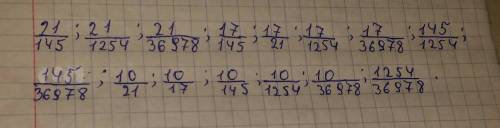 21/145 ; 21/1254 ; 21/36978 ; 17/145 ; 17/21 ; 17/1254 ; 17/36978 ; 145/1254 ;
145/36978 ; 10/21 ; 10/17 ; 10/145 ; 10/1254 ; 10/36978 ; 1254/36978 .